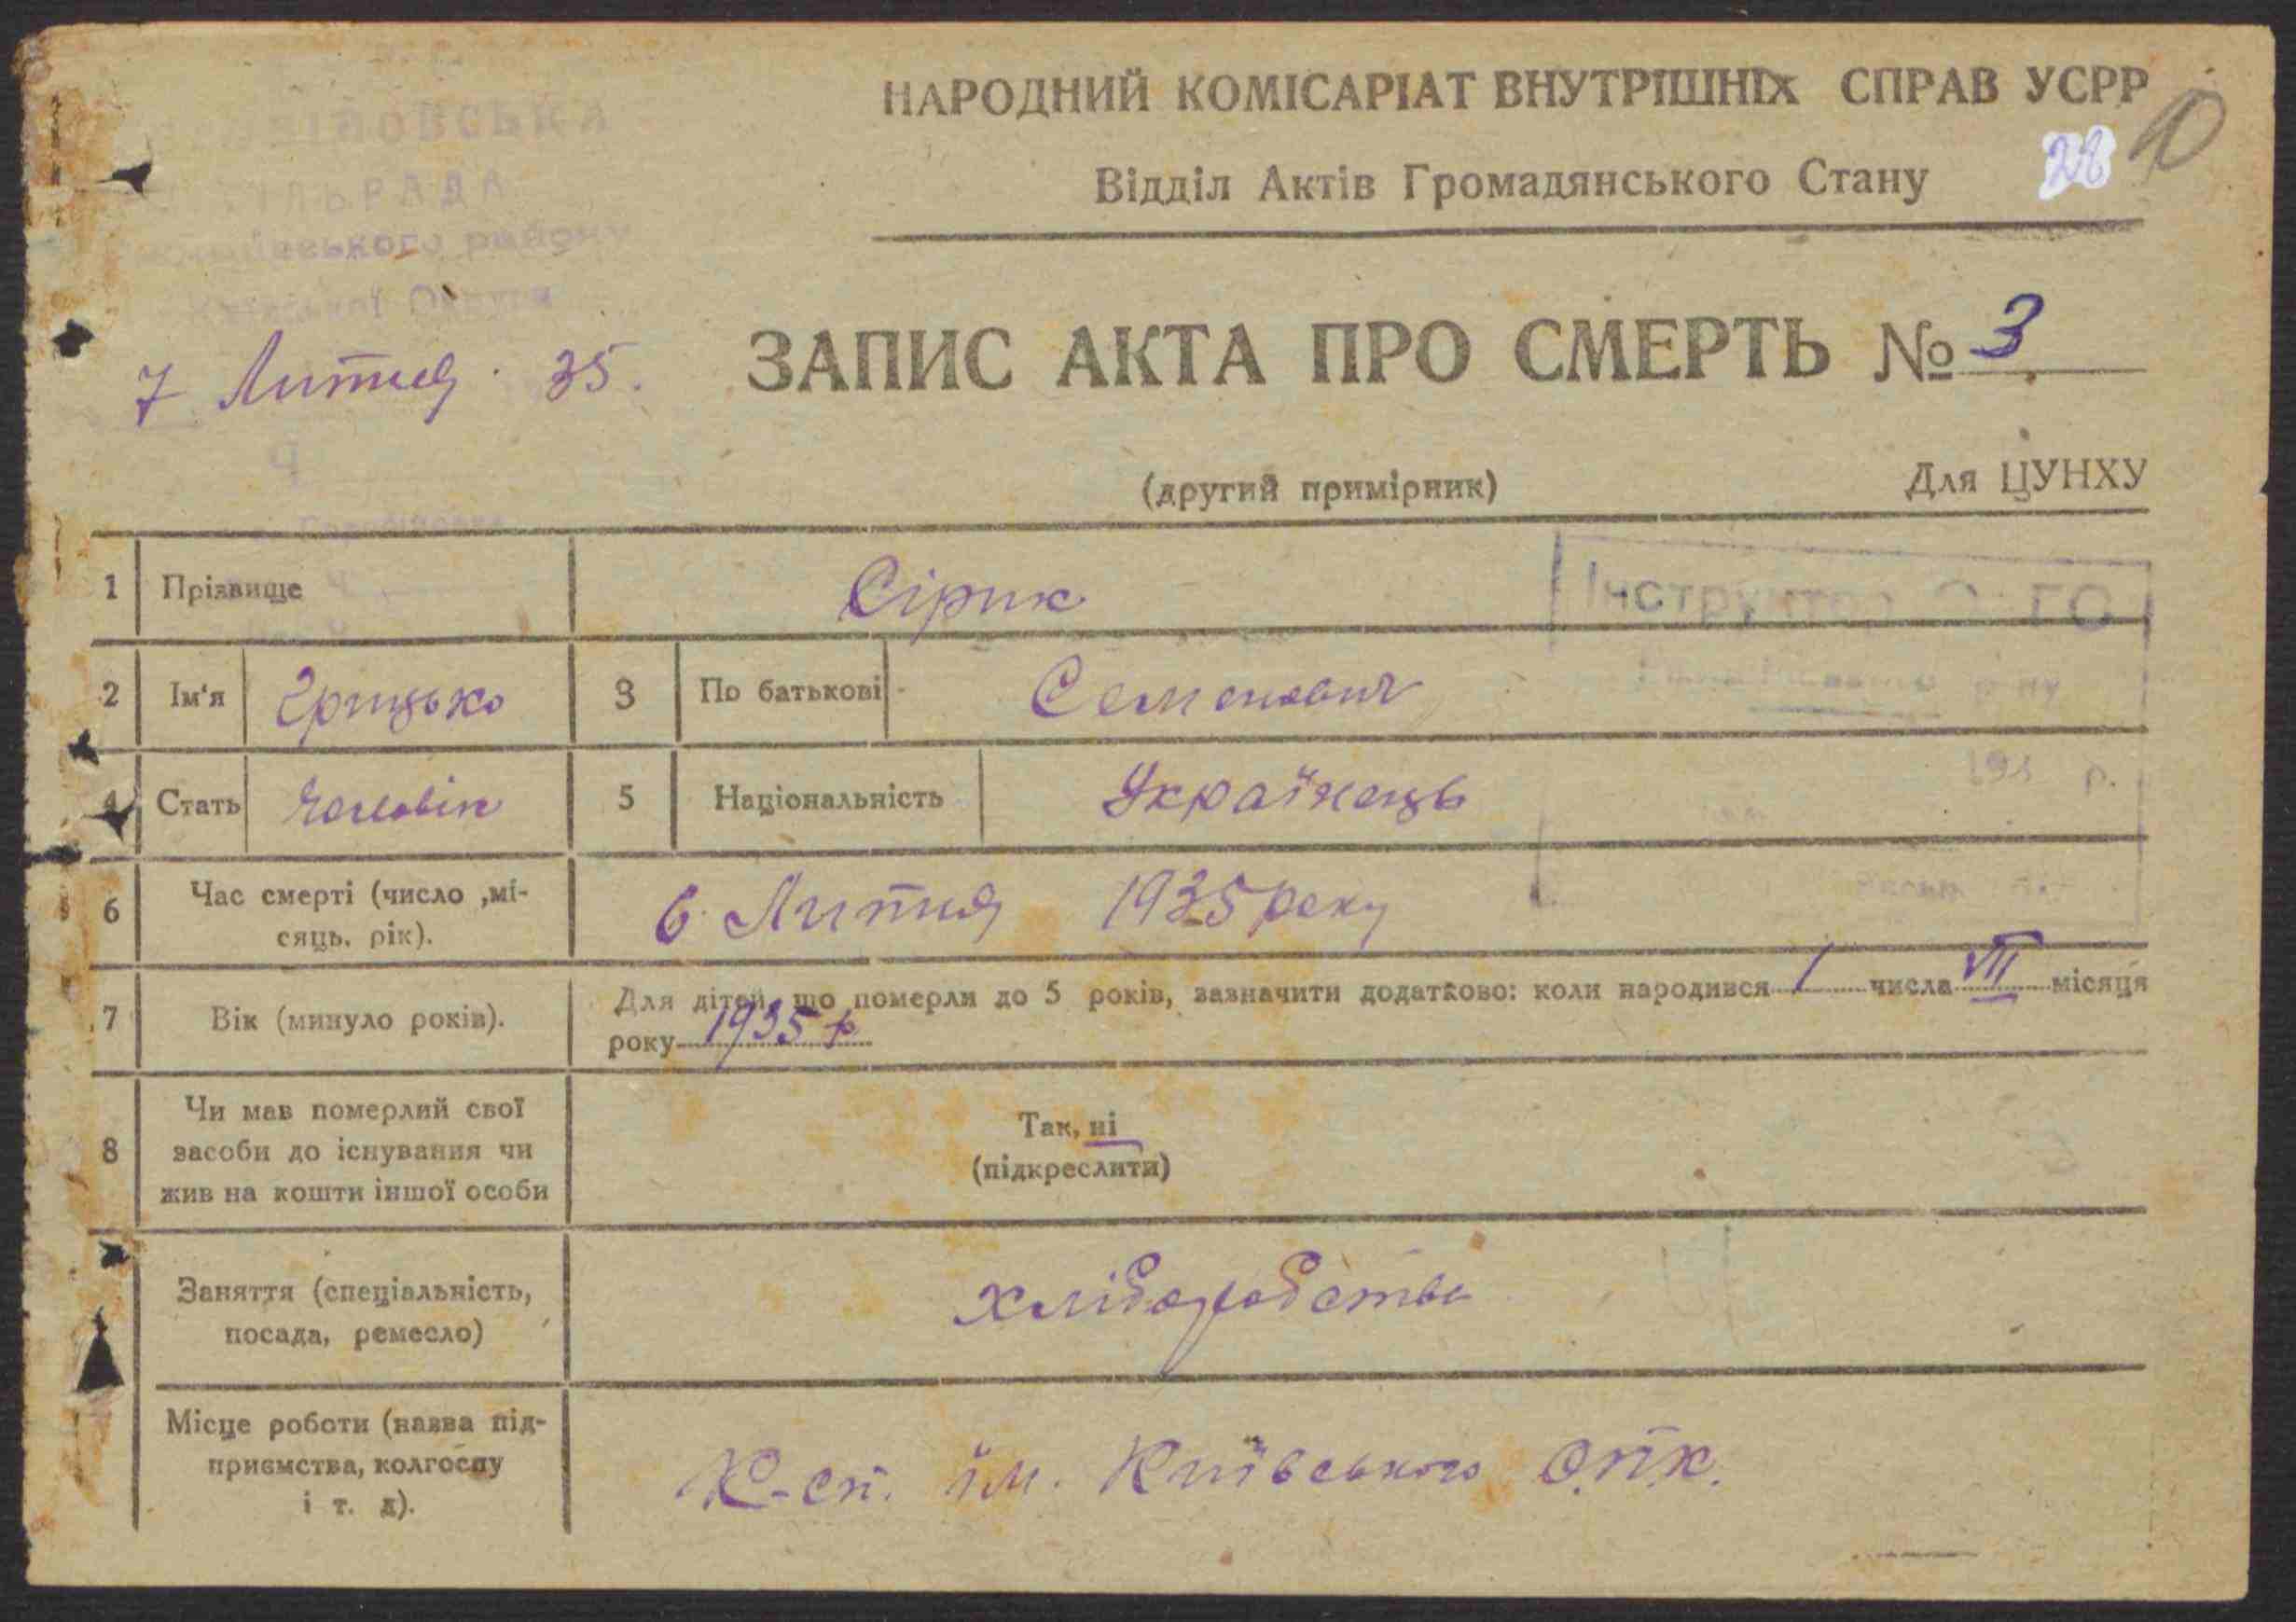 НАРОДНИЙ КОМІСАРІАТ ВНУТРІШНІХ СПРАВ УСРР
10
28
Відділ Актів Громадянського Стану
СІЛЬРАДА
району
7 Липня 35.
ЗАПИС АКТА ПРО СМЕРТЬ № 3
(другий примірник)
Для ЦУНХУ
1 Прізвище Сірик
2 Ім'я Грицько 3 По батькові Семенович
4 Стать Чоловік 5 Національність Українець
6 Час смерті (число ,мі-
сяць, рік). 6 Липня 1935 року
7 Вік (минуло років). Для дітей, що померли до 5 років, зазначити додатково: коли народився 1 числа VII місяця
року 1935 р
8 Чи мав померлий свої
засоби до існування чи
жив на кошти іншої особи
Так, ні
(підкреслити)
Заняття (спеціальність,
посада, ремесло)
хліборобство
Місце роботи (назва під-
приємства, колгоспу
і т. д).
К-сп. ім. Київського О.П.К.